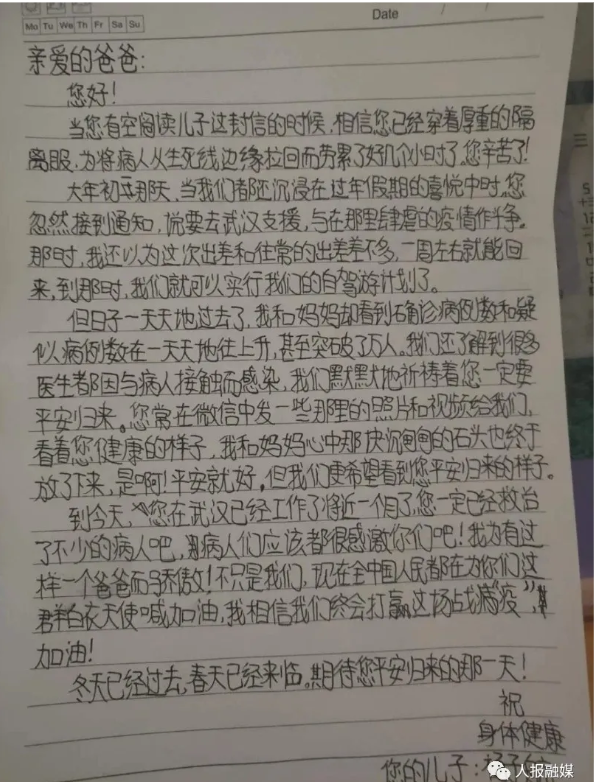 Mo Tu We Th Fr Sa Su
Date
亲爱的爸爸:
您好!
当您有空阅读儿子这封信的时候,相信您已经穿着厚重的隔
离服,为将病人从生死线边缘拉回而劳累了好几个小时了,您辛苦了!
大年初五那天,当我们都还沉浸在过年假期的喜悦中时,您
忽然接到通知,说要去武汉支援,与在那里肆虐的疫情作斗争。
那时,我还以为这次出差和往常的出差差不多,一周左右就能回
来,到那时,我们就可以实行我们的自驾游计划了。
但日子一天天地过去了,我和妈妈却看到确诊病例数和疑
似病例数在一天天地往上升,甚至突破了万人。我们还了解到很多
医生都因与病人接触而感染,我们默默地祈祷着您一定要
平安归来。您常在微信中发一些那里的照片和视频给我们,
看着您健康的样子,我和妈妈心中那块沉甸甸的石头也终于
放了下来,是啊!平安就好。但我们更希望看到您平安归来的样子。
到今天,您在武汉已经工作了将近一个月了,您一定已经救治
了不少的病人吧,病人们应该都很感激你们吧!我为有这
样一个爸爸而骄傲!不只是我们,现在全中国人民都在为你们这
群白衣天使喊加油,我相信我们终会打赢这场战“疫”,
加油!
冬天已经过去,春天已经来临。期待您平安归来的那一天!
祝
身体健康
您的儿子:
人报融媒